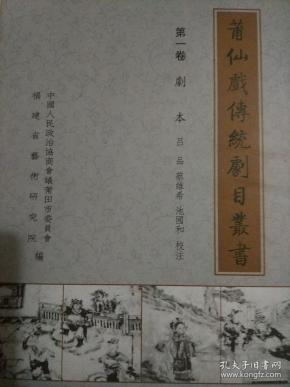 莆仙戲傳統劇目叢書
第一卷 劇本 呂品 蔡維希 池國和 校注
中國人民政治協商會議莆田市委員會
福建省藝術研究院 編
孔夫子旧书网